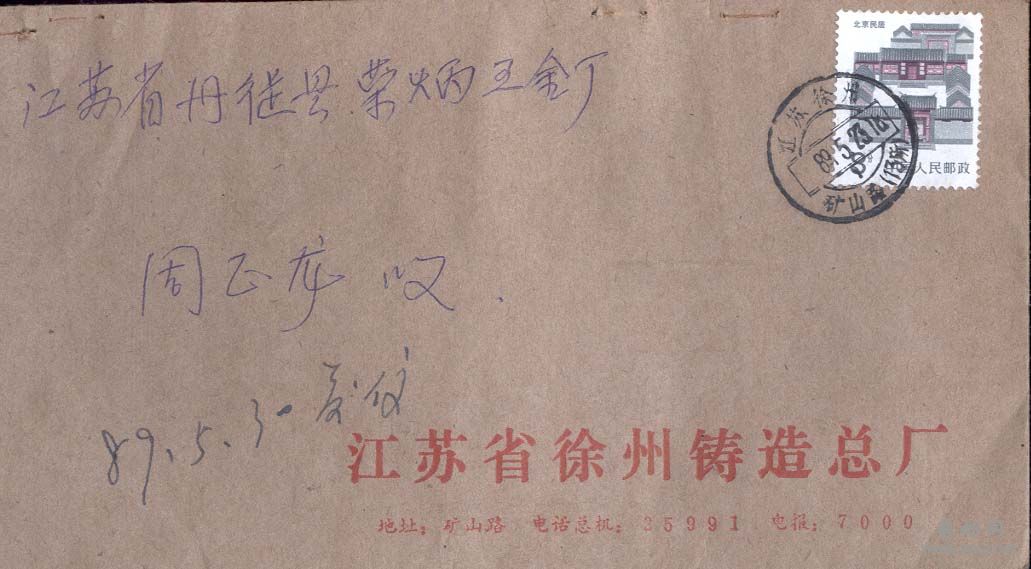 北京民居
江苏省丹徒县荣炳王金丁
江苏徐州
89.5.25.18
矿山路(信所)
人民邮政
周正龙 收.
89.5.30 复信
江苏省徐州铸造总厂
地址：矿山路 电话总机：25991 电报：7000